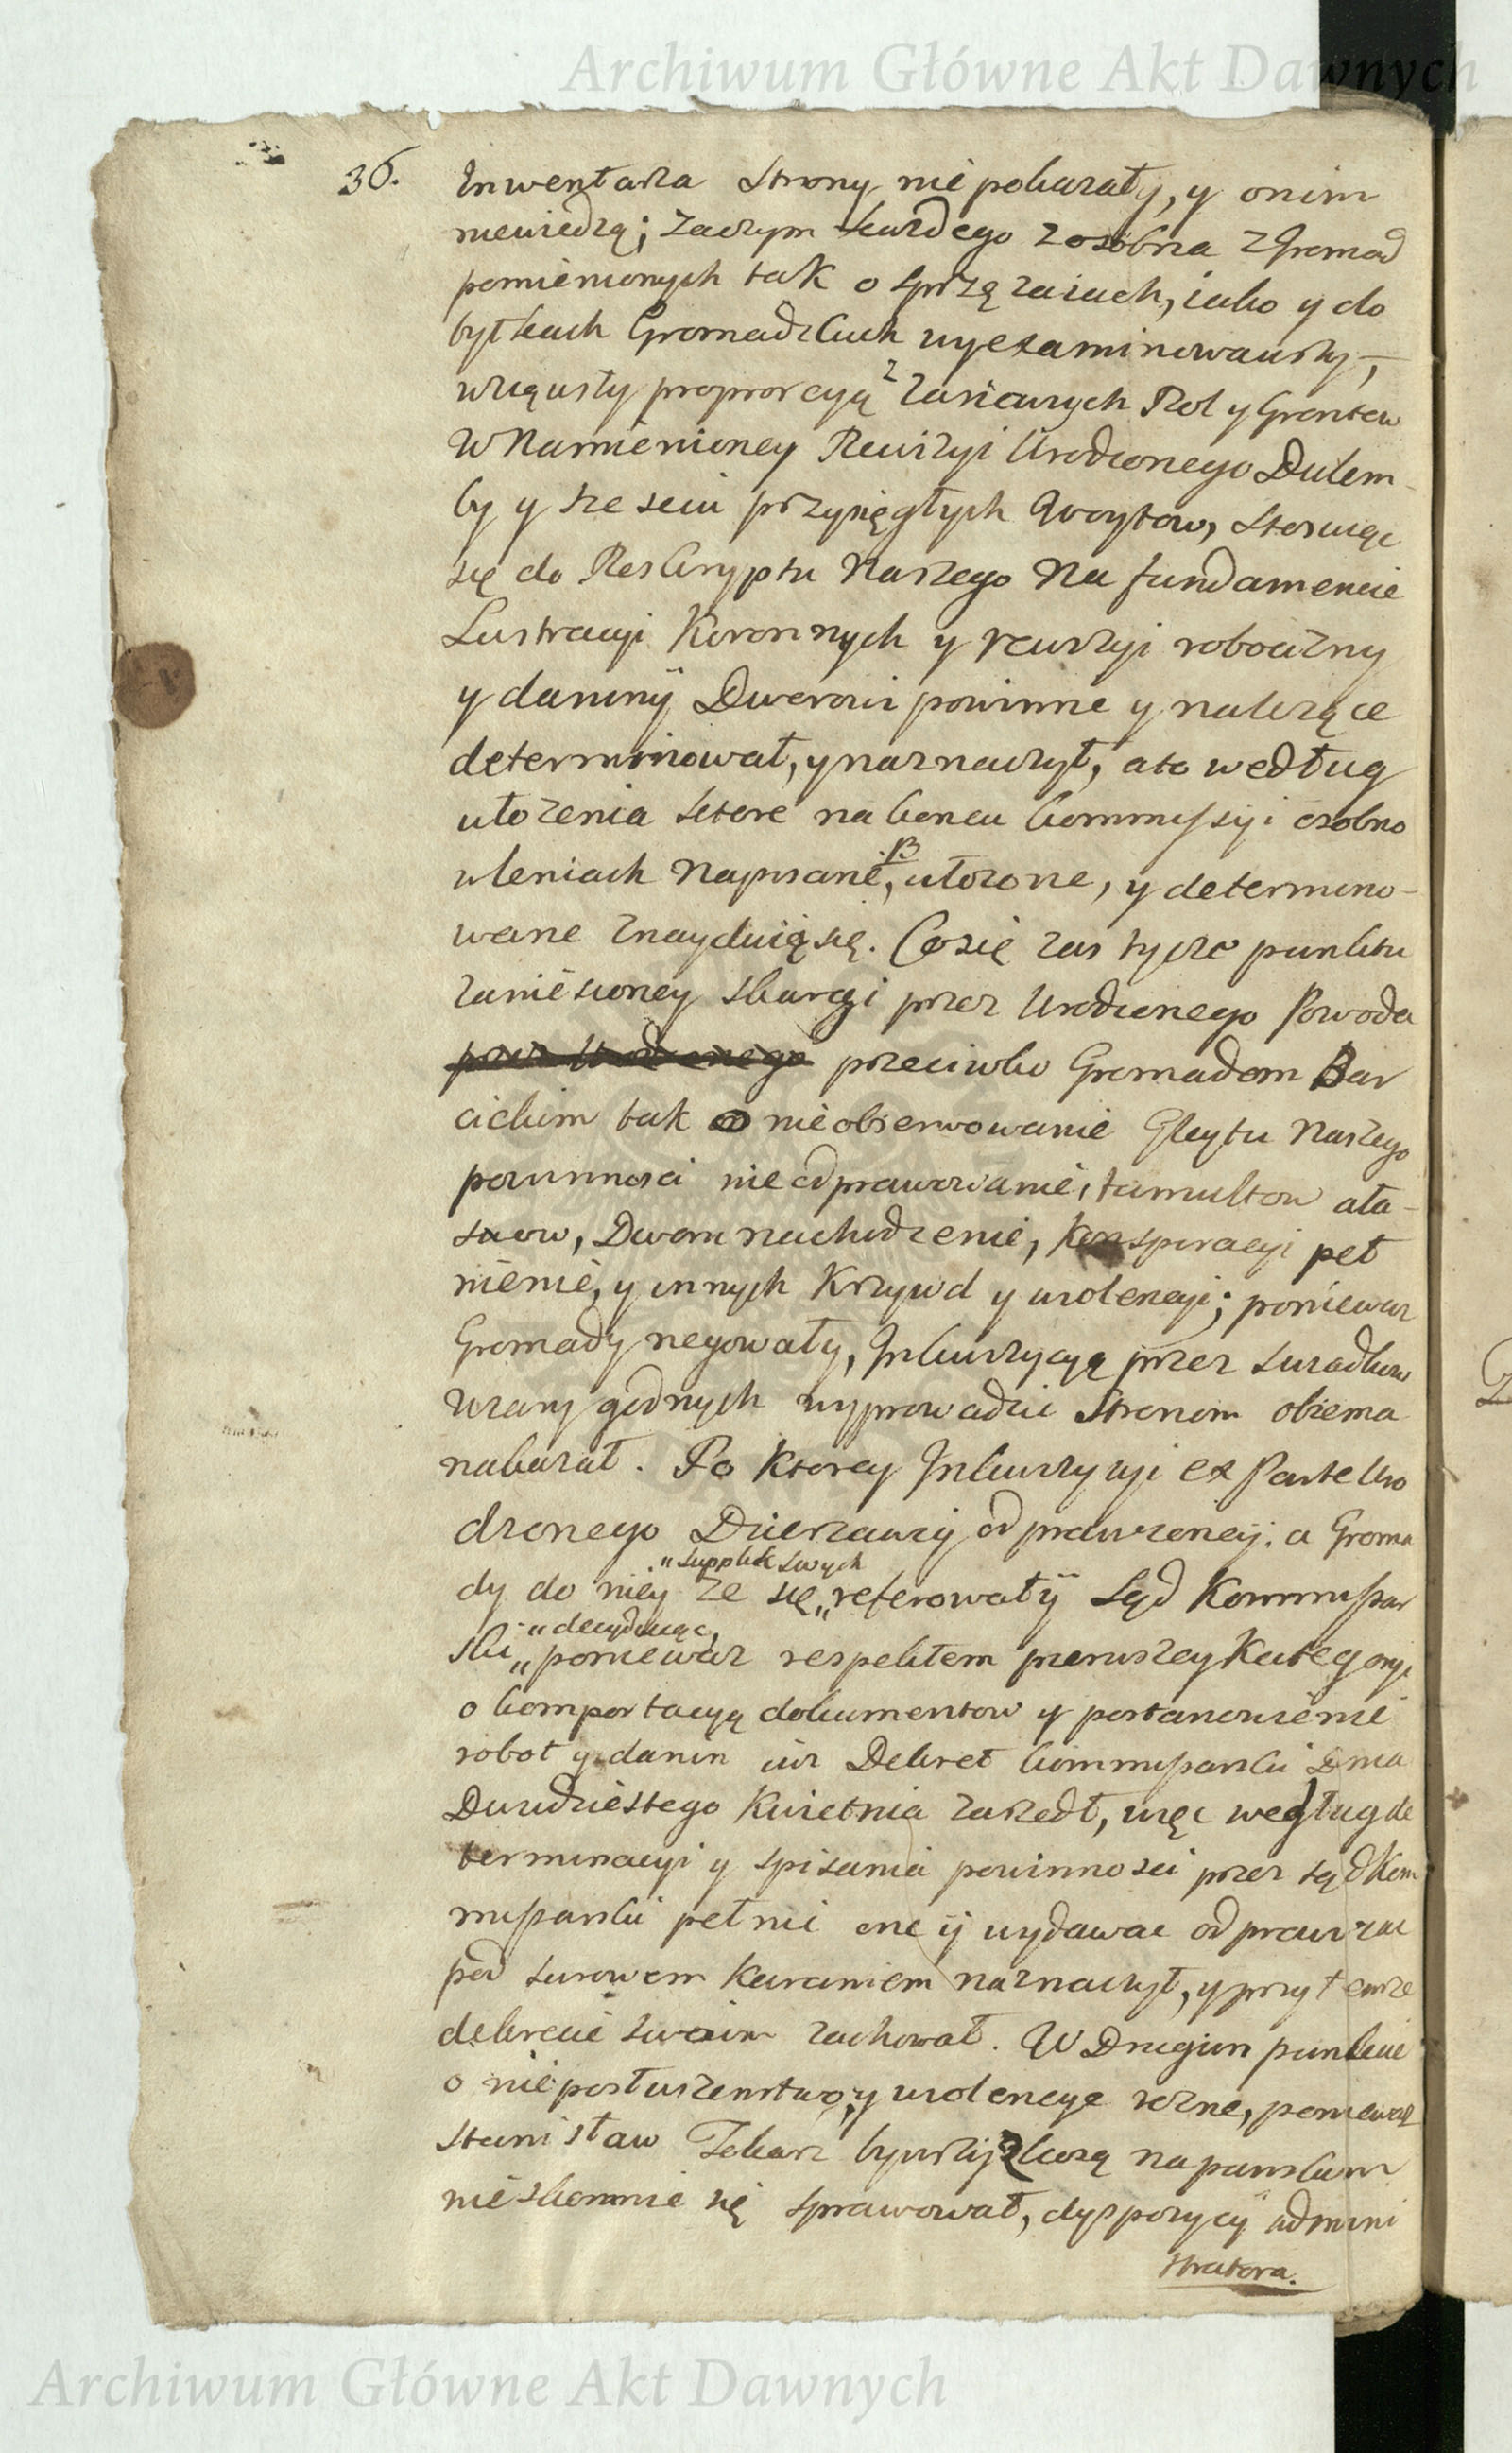 Archiwum Główne Akt Dawnych
36.
Inwentarza Strony nie pokazały, y onim
niewiedzą; zaczym każdego zosobna zGromad
pomienionych tak o sprzężaiach, iako y do
bytkach Gromadzkich wyexaminowawszy,
wziąwszy proporcyą z zasiewnych Rol y Grontow
W Namienioney Rewizyi Urodzonego Dulem-
by y sześciu przysięgłych Woytow, stosuiąc
się do Reskryptu Naszego Na fundamencie
Lustracyi Koronnych y rewizyi robocizny
y daniny Dworowi powinne y należące
determinował, y naznaczył, a to według
ułożenia ktore na końcu kommissyi osobno
wleniach Napisane, ułożone, y determino-
wane znayduią się. Co się zas tycze punktu
zaniesioney skargi przez Urodzonego Powoda
przez Urodzonego przeciwko Gromadom Bar
cickim tak o nieobserwowanie Gleytu Naszego
powinnosci nieodprawowanie, tumultow ata-
kow, Dworu nachodzenie, Konspiracyi peł
nienie, y innych Krzywd y wiolencyi; poniewaz
Gromady negowały, Inkwizycyą przez swiadkow
wiary godnych wyprowadzic Stronom obiema
nakazał. Po ktorey Inkwizycyi ex Parte Uro
dzonego Dzierzawcy odprawioney, a Groma
dy do niey ze się „ referowały Sąd Kommissar
„ supplik swych
ski „ poniewaz respektem pierwszey Kategoryi
„ decyduiąc,
o komportacyą dokumentow y postanowienie
robot y danin iuz Dekret kommissarski Dnia
Dwudziestego Kwietnia zaszedł, więc według de
terminacyi y spisania powinnosci przez sąd Kom
missarski pełnic one y wydawac odprawiac
pod surowem Karaniem naznaczył, y przy temze
dekrecie swoim zachował. W Drugim punkcie
o nieposłuszenstwo, y wiolencye rozne, poniewaz
Stanisław Tokarz bywszy z kosą na panskim
nieskromnie się sprawował, dyspozycyi admini
stratora.
Archiwum Główne Akt Dawnych